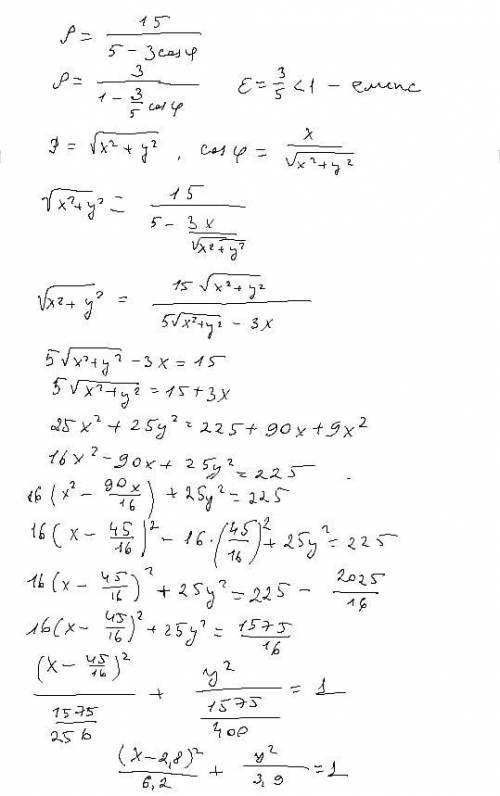 ρ = 15 / (5 - 3cosφ)
ρ = 3 / (1 - 3/5 cosφ)   ε = 3/5 < 1 - еліпс
ρ = √(x² + y²) , cosφ = x / √(x² + y²)
√(x² + y²) = 15 / (5 - 3x / √(x² + y²))
√(x² + y²) = 15√(x² + y²) / (5√(x² + y²) - 3x)
5√(x² + y²) - 3x = 15
5√(x² + y²) = 15 + 3x
25x² + 25y² = 225 + 90x + 9x²
16x² - 90x + 25y² = 225
16(x² - 90x/16) + 25y² = 225
16(x - 45/16)² - 16·(45/16)² + 25y² = 225
16(x - 45/16)² + 25y² = 225 - 2025/16
16(x - 45/16)² + 25y² = 1575/16
(x - 45/16)² / (1575/256) + y² / (1575/400) = 1
(x - 2,8)² / 6,2 + y² / 3,9 = 1